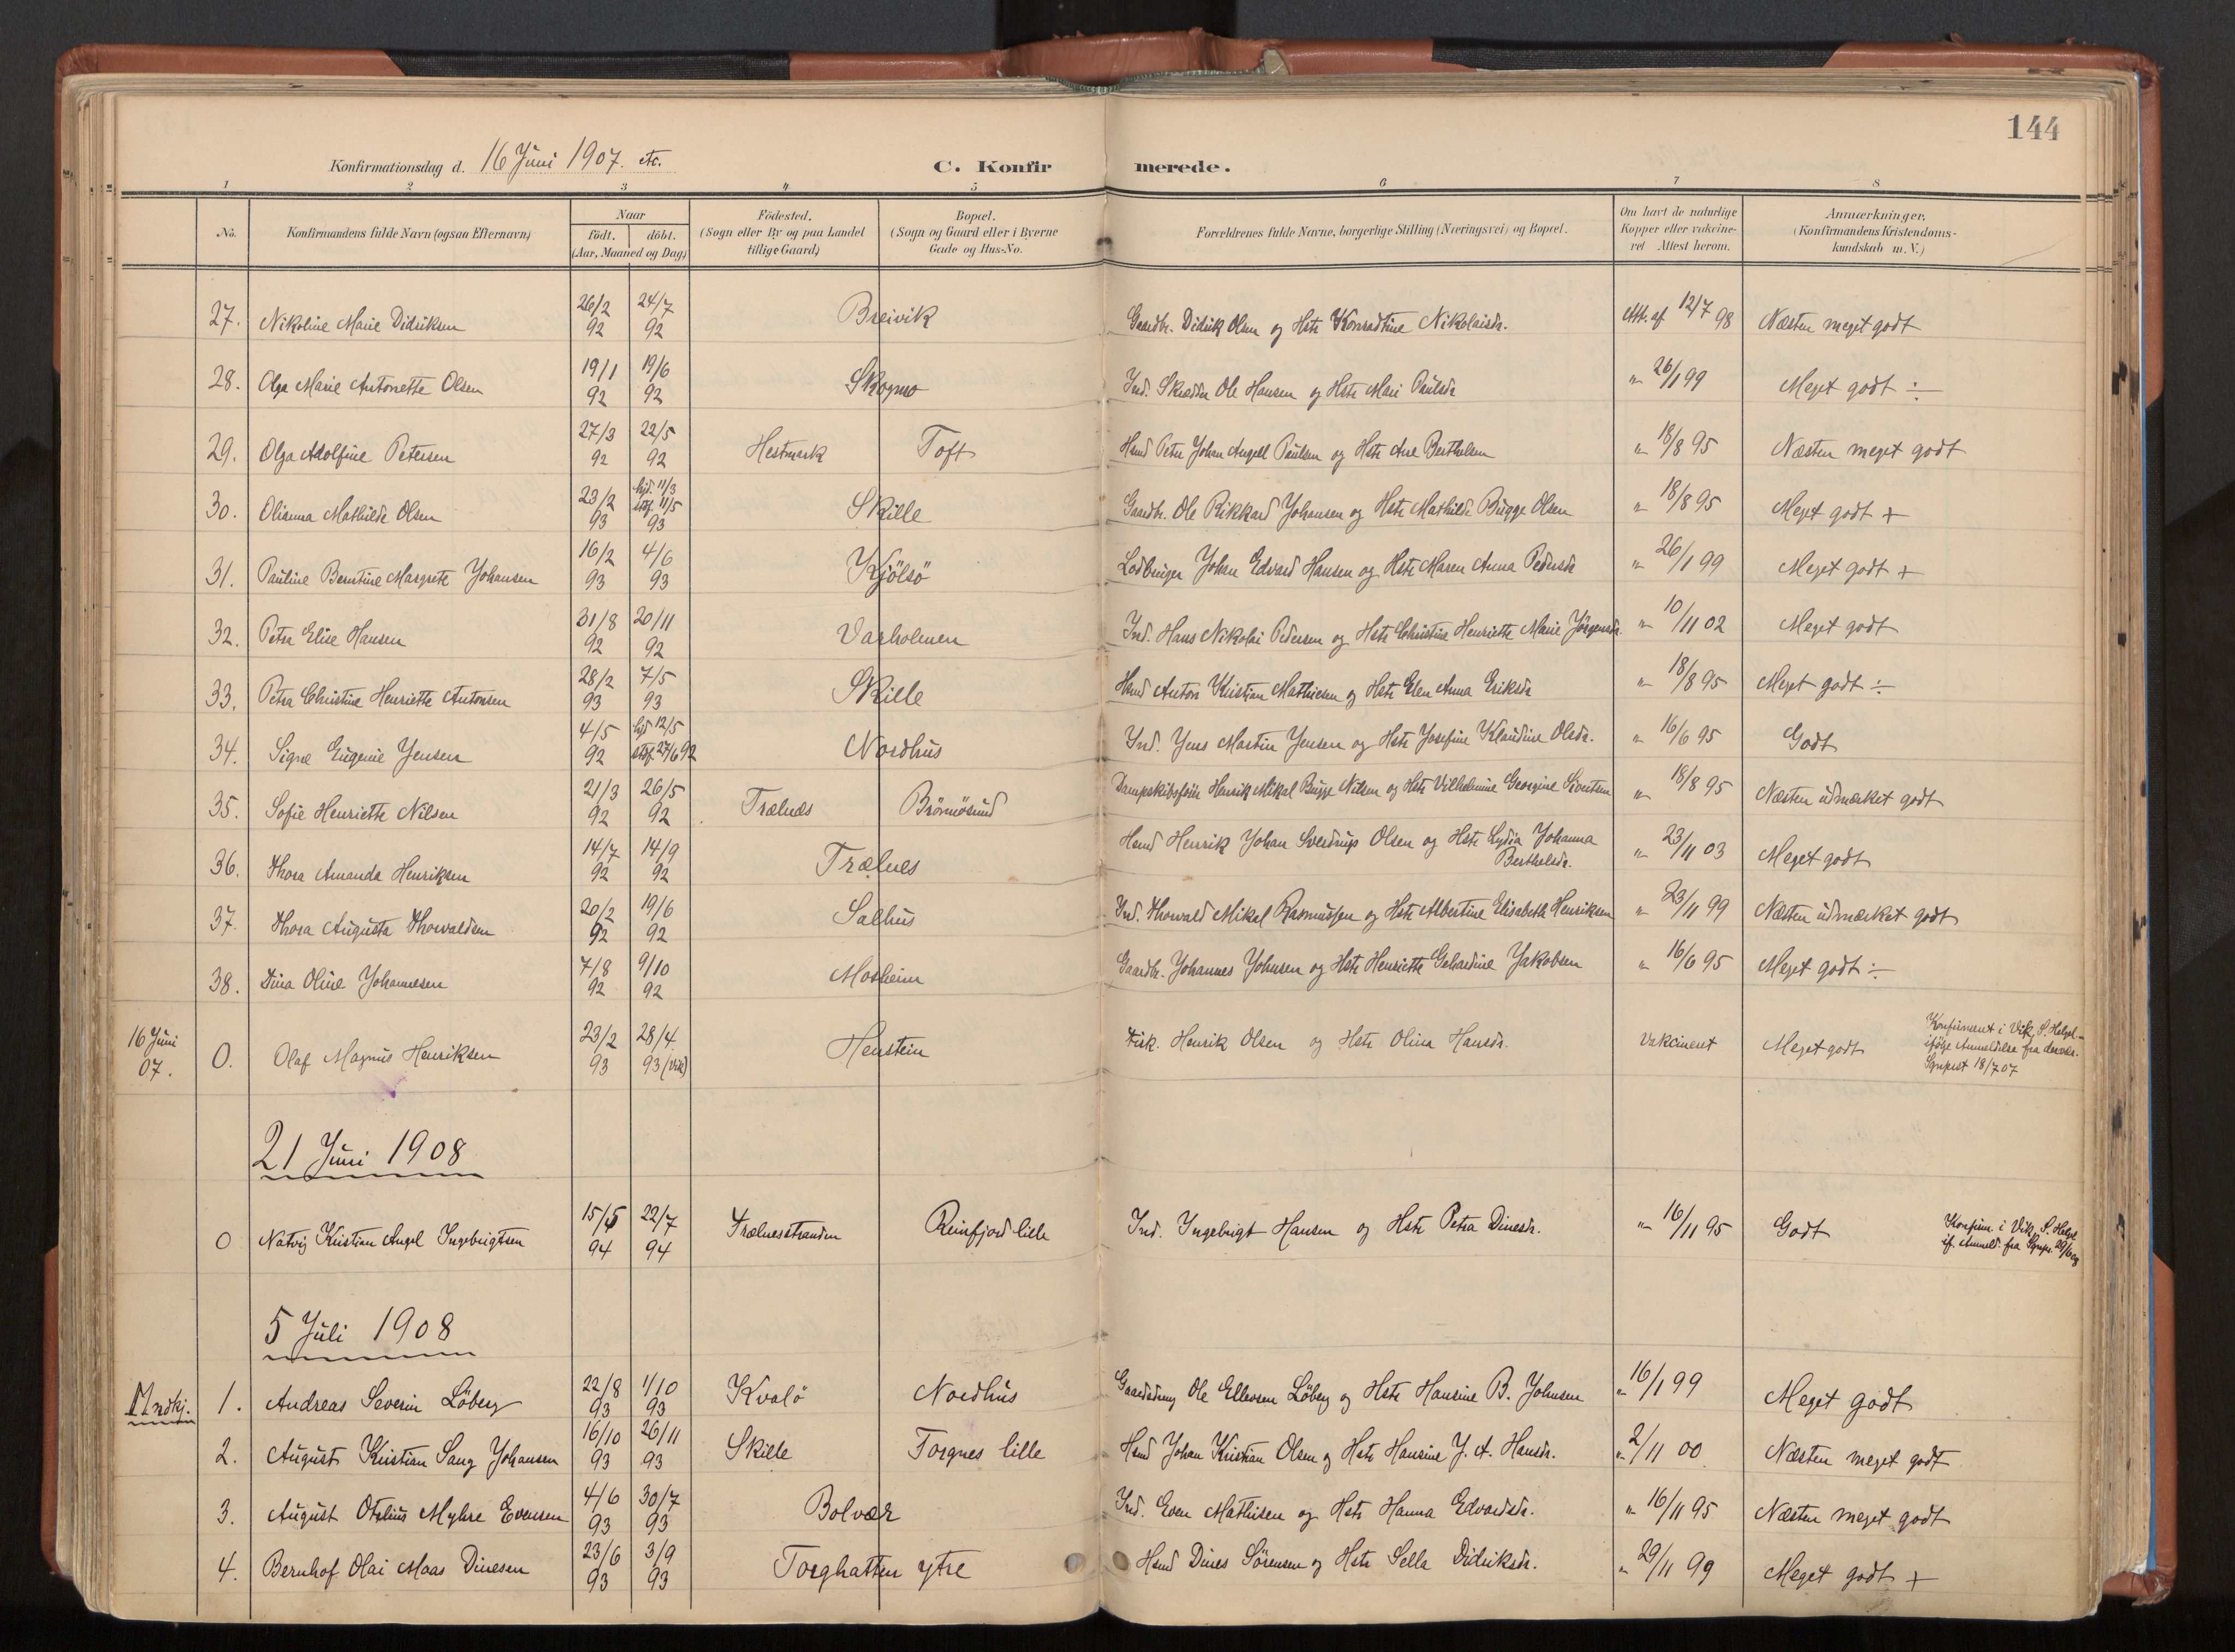 144
Konfirmationsdag d. 16 Juni 1907. etc.
C. Konfirmerede.
1 2 3 4 5 6 7 8
No. Konfirmandens fulde Navn (ogsaa Efternavn) Naar födt. döbt. (Aar, Maaned og Dag) Födested. (Sogn eller By og paa Landet tillige Gaard) Bopæl. (Sogn og Gaard eller i Byerne Gade og Hus-No. Forældrenes fulde Navne, borgerlige Stilling (Næringsvei) og Bopæl. Om havt de naturlige Kopper eller vakcineret Attest herom. Anmærkninger. (Konfirmandens Kristendomskundskab m. V.)
27. Nikoline Marie Didriksen 26/2 92 24/7 92 Breivik Gaardbr. Didrik Olsen og Hstr Konradine Nikolaisdr. Att. af 12/7 98 Næsten meget godt
28. Olga Marie Antonette Olsen 19/1 92 19/6 92 Skogmo Ind. Skrædder Ole Hansen og Hstr Mari Paulsdr " 26/1 99 Meget godt ÷
29. Olga Adolfine Petersen 27/3 92 22/5 92 Hestmark Toft Hmd Peter Johan Angell Paulsen og Hstr Ane Berthelsen " 18/8 95 Næsten meget godt
30. Olianna Mathilde Olsen 23/2 93 hjd. 11/3 stf. 11/5 93 Skille Gaardbr. Ole Rikkard Johansen og Hstr Mathilde Bugge Olsen " 18/8 95 Meget godt +
31. Pauline Berntine Margrete Johansen 16/2 93 4/6 93 Kjölsö Lodbruger Johan Edvard Hansen og Hstr Maren Anna Pedersdr " 26/1 99 Meget godt +
32. Petra Elise Hansen 31/8 92 20/11 92 Varholmen Ind. Hans Nikolai Pedersen og Hstr Christine Henriette Marie Jörgensdr. " 10/11 02 Meget godt
33. Petra Christine Henriette Antonsen 28/2 93 7/5 93 Skille Hmd Anton Kristian Mathisen og Hstr Elen Anna Eriksdr " 18/8 95 Meget godt ÷
34. Signe Eugenie Jensen 4/5 92 hjd 12/5 stf. 27/6 92 Nordhus Ind. Jens Martin Jensen og Hstr Josefine Klaudine Olsdr. " 16/6 95 Godt
35. Sofie Henriette Nilsen 21/3 92 26/5 92 Trælnes Brönnösund Dampskibsförer Henrik Mikal Bugge Nilsen og Hstr Vilhelmine Georgine Sivertsen " 18/8 95 Næsten udmærket godt
36. Thora Amanda Henriksen 14/7 92 14/9 92 Trælnes Hmd Henrik Johan Sverdrup Olsen og Hstr Lydia Johanna Berthelsdr. " 23/11 03 Meget godt
37. Thora Augusta Thorvaldsen 20/2 92 19/6 92 Salhus Ind. Thorvald Mikal Rasmussen og Hstr Albertine Elisabeth Henriksen " 23/11 99 Næsten udmærket godt
38. Dina Oline Johannesen 7/8 92 9/10 92 Mosheim Gaardbr. Johannes Johnsen og Hstr Henriette Gehardine Jakobsen " 16/6 95 Meget godt ÷
16 Juni 07. 0. Olaf Magnus Henriksen 23/2 93 28/4 93 (Vik) Henstein Fisk. Henrik Olsen og Hstr Olina Hansdr. Vakcineret Meget godt Konfirmeret i Vik, S. Helgel. ifölge Anmeldelse fra derv. Sgnprst 18/7 07
21 Juni 1908
0 Natvig Kristian Angel Ingebrigtsen 15/5 94 22/7 94 Trælnesstranden Reinfjord lille Ind. Ingebrigt Hansen og Hstr Petra Dinesdr. " 16/11 95 Godt Konfirm. i Vik, S. Helgl. if. Anmeld. fra Sgnpr.
5 Juli 1908
Mndkj. 1. Andreas Severin Löberg 22/8 93 1/10 93 Kvalö Nordhus Ole Ellevsen Löberg og Hstr Hansine B. Johnsen " 16/1 99 Meget godt
2. August Kristian Sang Johansen 16/10 93 26/11 93 Skille Torgnes lille Hmd Johan Kristian Olsen og Hstr Hansine J. A. Hansdr. " 2/11 00 Næsten meget godt
3. August Otelius Myhre Evensen 4/6 93 30/7 93 Bolvær Ind. Even Mathisen og Hstr Hanna Edvardsdr. " 16/11 95 Næsten meget godt
4. Bernhof Olai Maas Dinesen 23/6 93 3/9 93 Torghatten ytre Hmd Dines Sörensen og Hstr Sella Didriksdr. " 29/11 99 Meget godt +